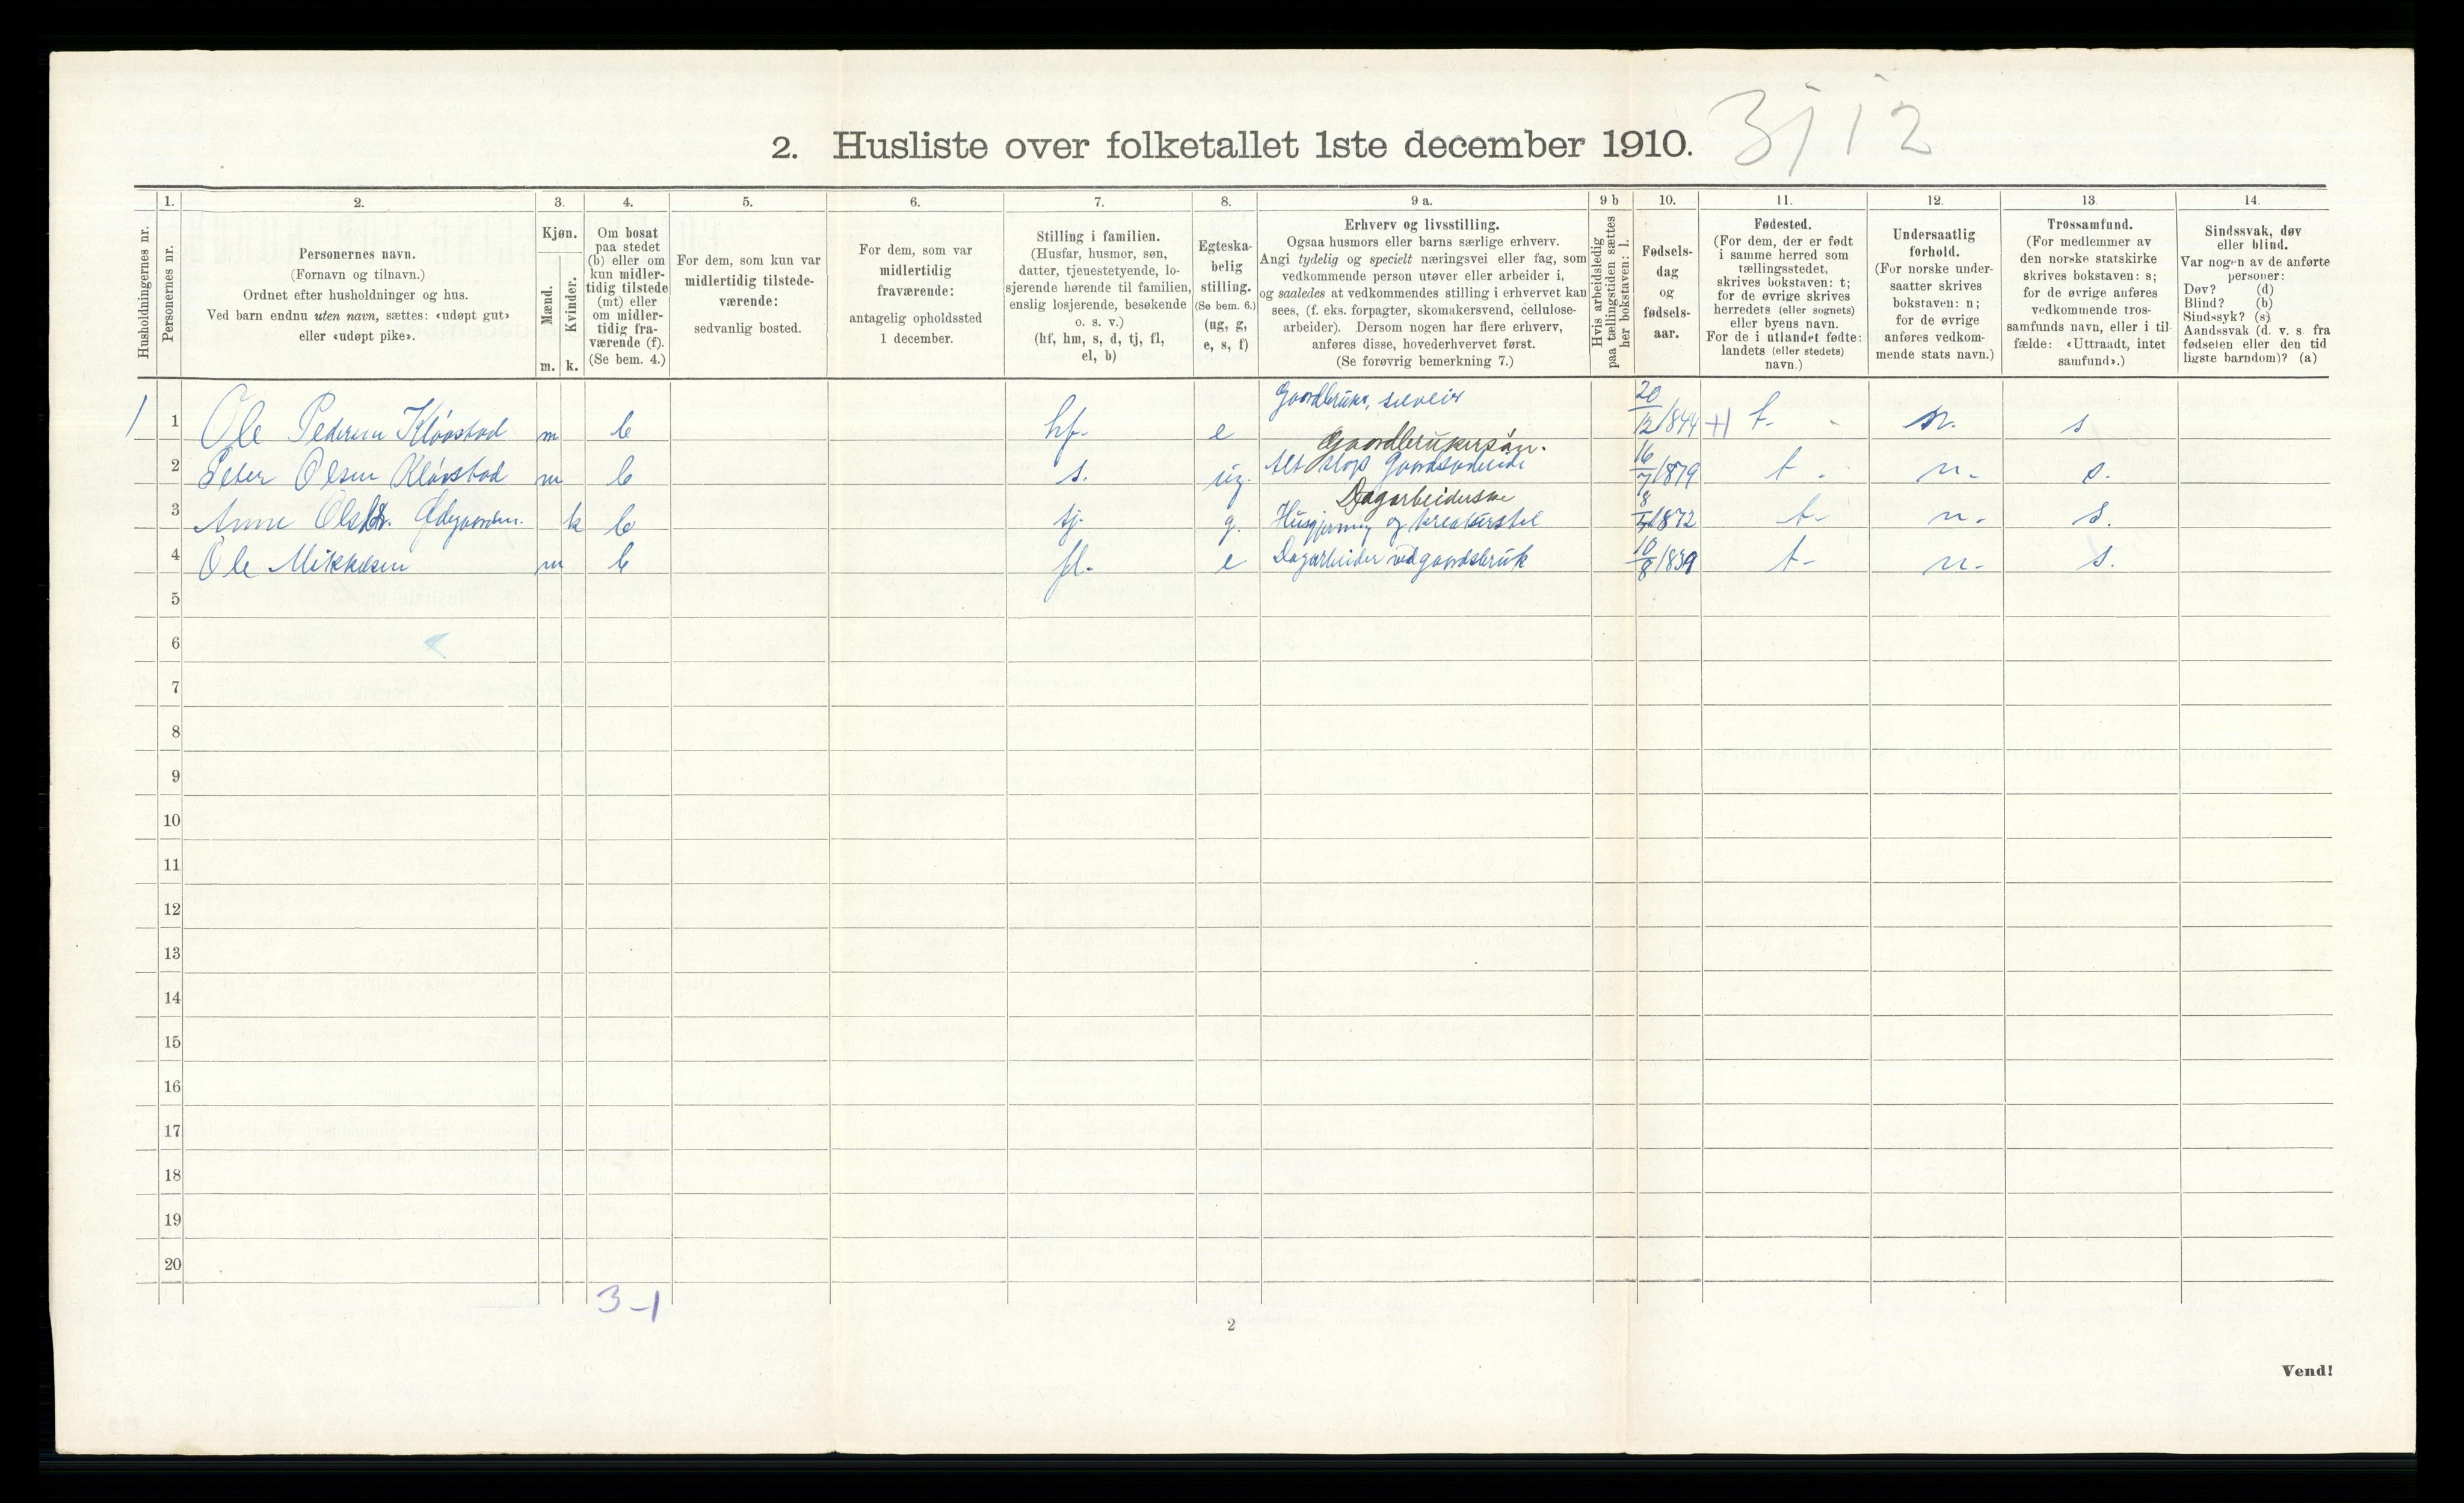 2. Husliste over folketallet 1ste december 1910.
3/12
Husholdningernes nr.
1.
Personernes nr.
2.
Personernes navn.
(Fornavn og tilnavn.)
Ordnet efter husholdninger og hus.
Ved barn endnu uten navn, sættes: «udøpt gut»
eller «udøpt pike».
3.
Kjøn.
Mænd.
Kvinder.
m. k.
4.
Om bosat
paa stedet
(b) eller om
kun midler-
tidig tilstede
(mt) eller
om midler-
tidig fra-
værende (f).
(Se bem. 4.)
5.
For dem, som kun var
midlertidig tilstede-
værende:
sedvanlig bosted.
6.
For dem, som var
midlertidig
fraværende:
antagelig opholdssted
1 december.
7.
Stilling i familien.
(Husfar, husmor, søn,
datter, tjenestetyende, lo-
sjerende hørende til familien,
enslig losjerende, besøkende
o. s. v.)
(hf, hm, s, d, tj, fl,
el, b)
8.
Egteska-
belig
stilling.
(Se bem. 6.)
(ug, g,
e, s, f)
9 a.
Erhverv og livsstilling.
Ogsaa husmors eller barns særlige erhverv.
Angi tydelig og specielt næringsvei eller fag, som
vedkommende person utøver eller arbeider i,
og saaledes at vedkommendes stilling i erhvervet kan
sees, (f. eks. forpagter, skomakersvend, cellulose-
arbeider). Dersom nogen har flere erhverv,
anføres disse, hovederhvervet først.
(Se forøvrig bemerkning 7.)
9 b
Hvis arbeidsledig
paa tællingstiden sættes
her bokstaven: l.
10.
Fødsels-
dag
og
fødsels-
aar.
11.
Fødested.
(For dem, der er født
i samme herred som
tællingsstedet,
skrives bokstaven: t;
for de øvrige skrives
herredets (eller sognets)
eller byens navn.
For de i utlandet fødte:
landets (eller stedets)
navn.)
12.
Undersaatlig
forhold.
(For norske under-
saatter skrives
bokstaven: n;
for de øvrige
anføres vedkom-
mende stats navn.)
13.
Trossamfund.
(For medlemmer av
den norske statskirke
skrives bokstaven: s;
for de øvrige anføres
vedkommende tros-
samfunds navn, eller i til-
fælde: «Uttraadt, intet
samfund».)
14.
Sindssvak, døv
eller blind.
Var nogen av de anførte
personer:
Døv? (d)
Blind? (b)
Sindssyk? (s)
Aandssvak (d. v. s. fra
fødselen eller den tid
ligste barndom)? (a)
1 1 Ole Pedersen Kløvstad m b hf. e Gaardbruker, selveier 20/12 1844 t. n. s
2 Peter Olsen Kløvstad m b s. ug. Gaardbrukersøn. Alt slags Gaardsarbeide 16/7 1879 t. n. s.
3 Anne Olsdtr. Ødegaarden. k b tj. g. Dagarbeiderske Husgjerning og kreaturstel 1872 t. n. s.
4 Ole Mikkelsen m b fl. e Dagarbeider ved gaardsbruk 10/8 1839 t. n. s.
5
6
7
8
9
10
11
12
13
14
15
16
17
18
19
20
3-1
2
Vend!